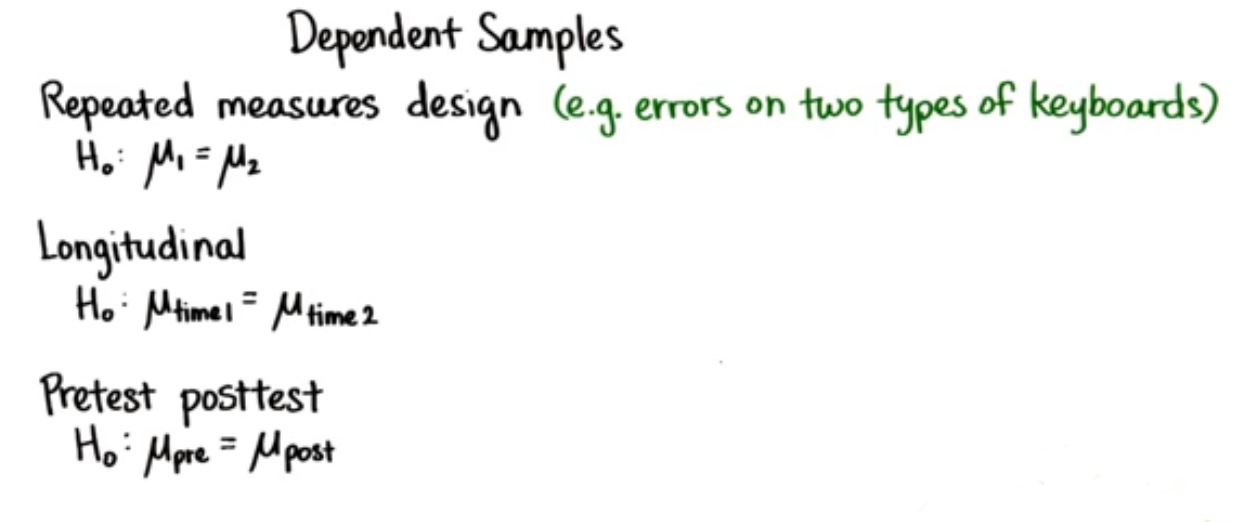 Dependent Samples
Repeated measures design (e.g. errors on two types of keyboards)
H₀: μ₁ = μ₂
Longitudinal
H₀: μtime1 = μtime2
Pretest posttest
H₀: μpre = μpost